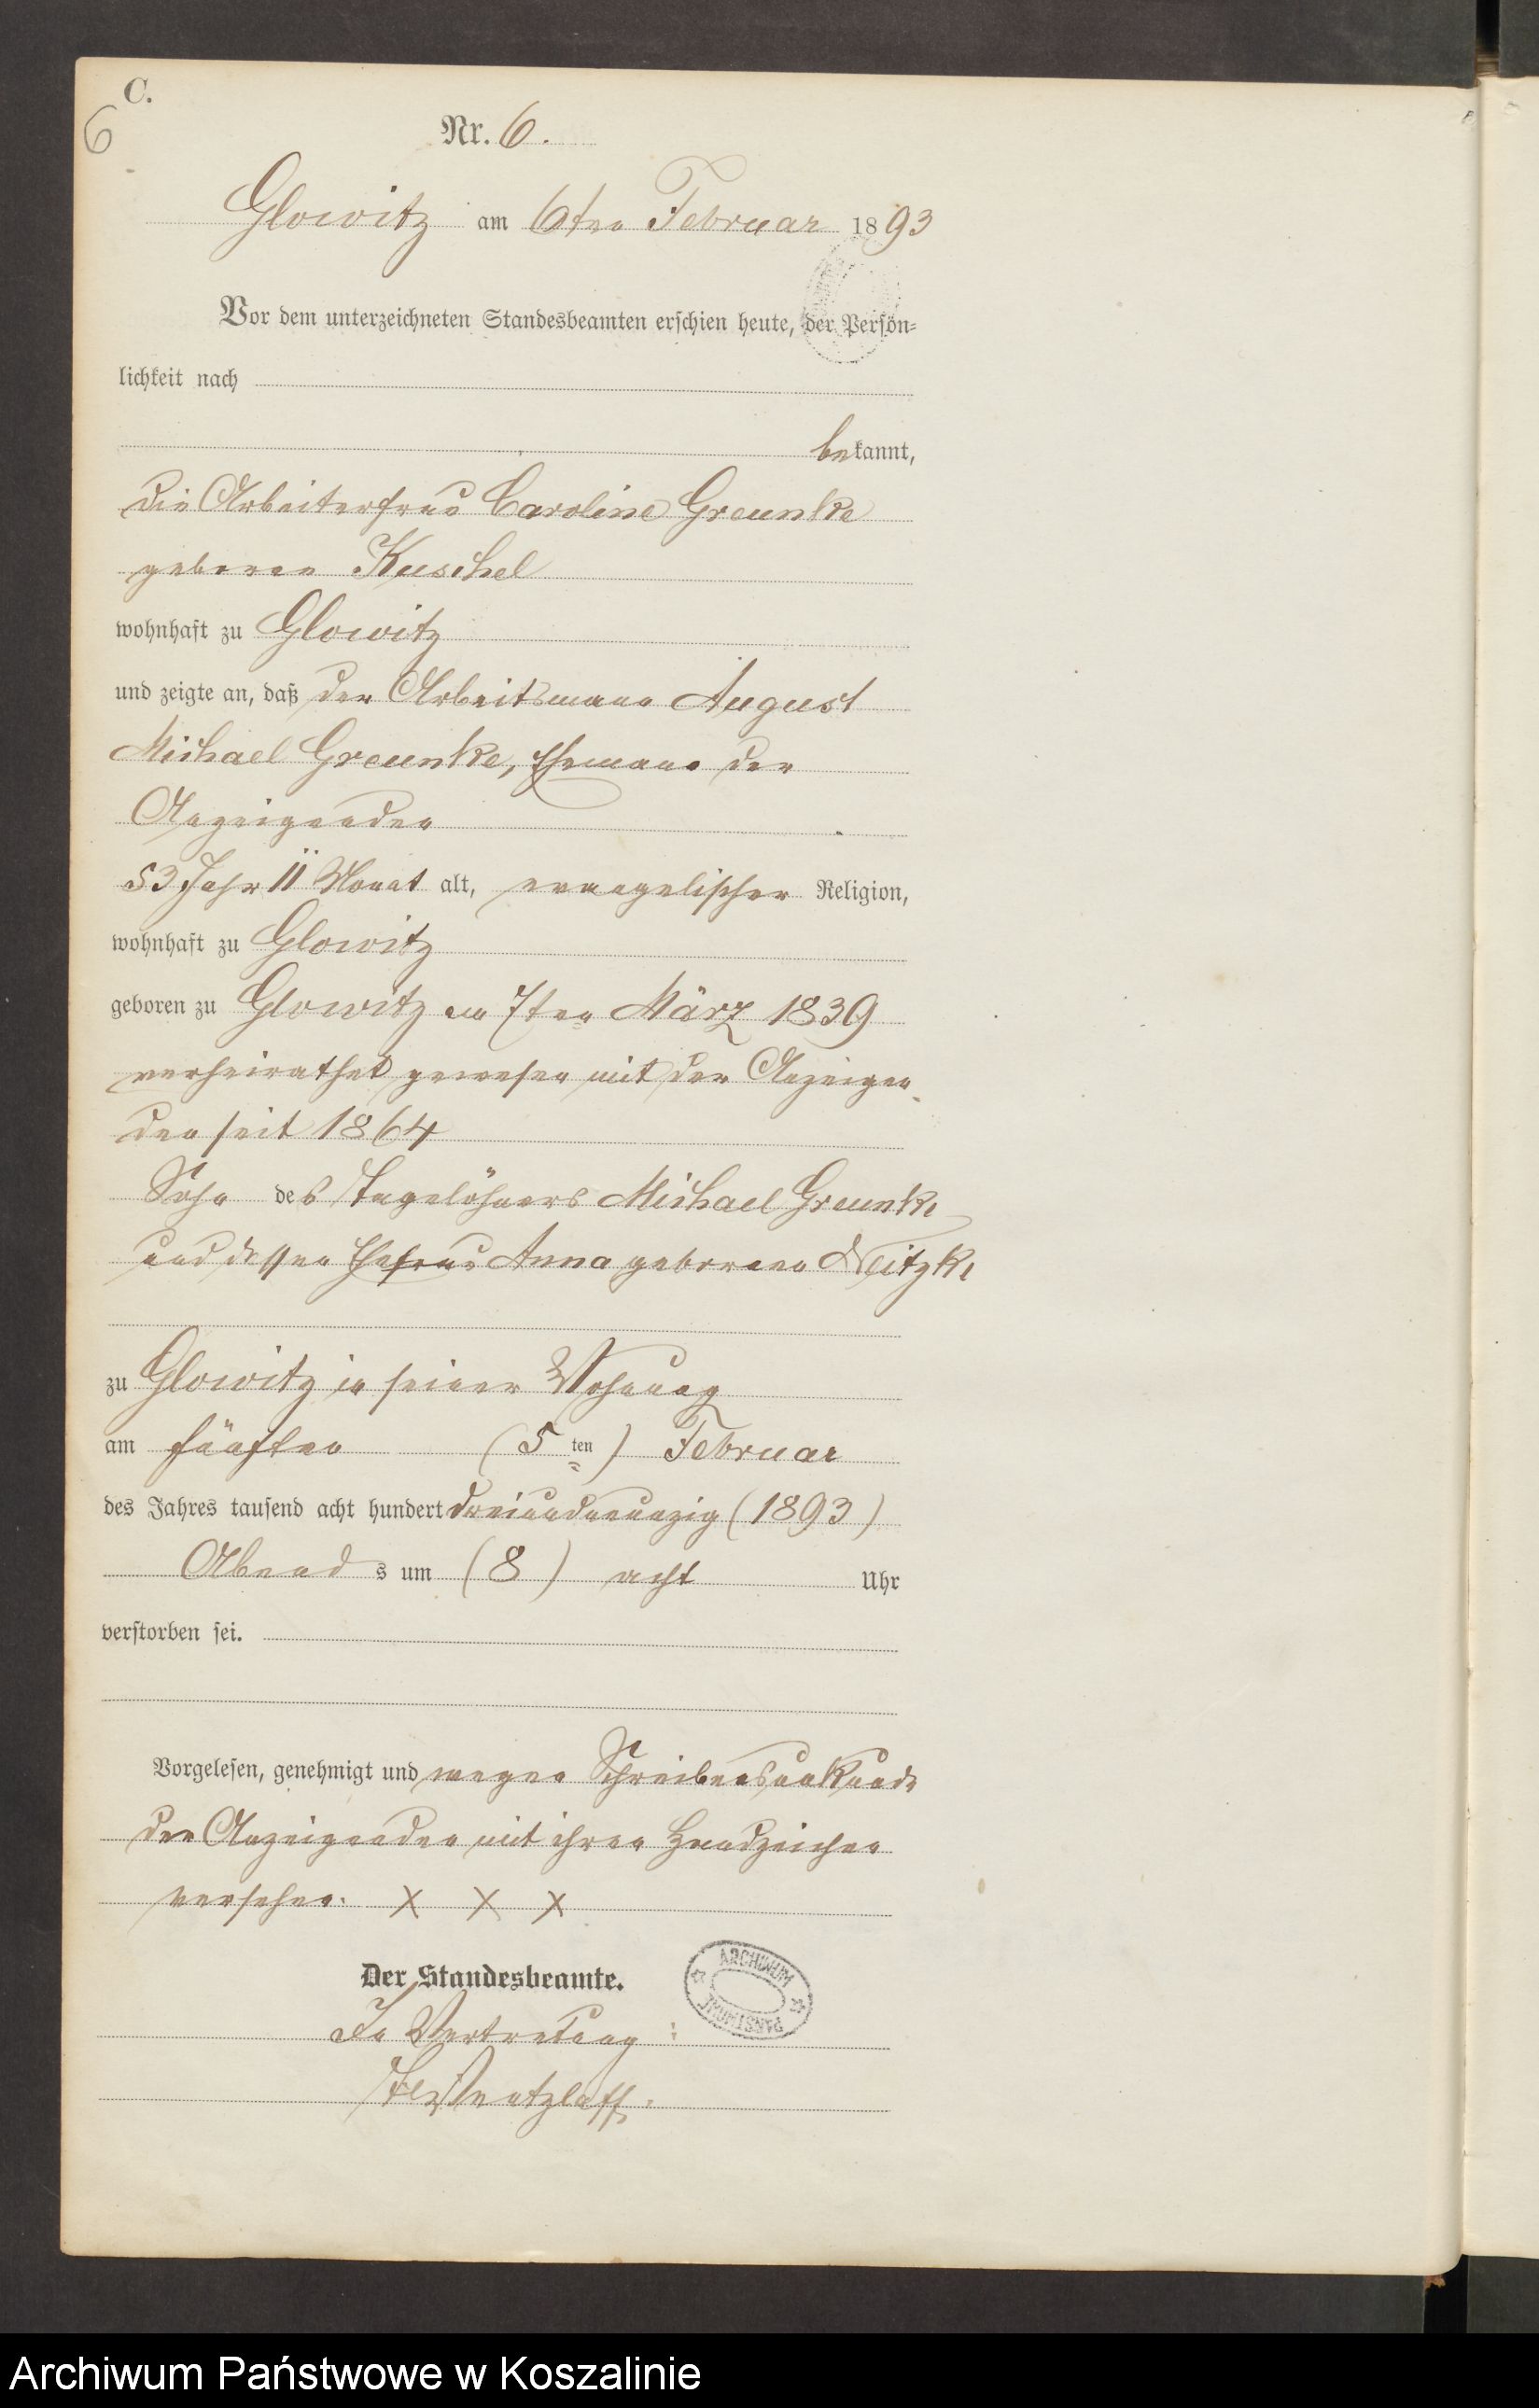 C.
6
Nr. 6.
Glowitz am 6ten Februar 1893
Vor dem unterzeichneten Standesbeamten erschien heute, der Persön-
lichkeit nach
bekannt,
die Arbeiterfrau Caroline Greunke
geboren Kuschel
wohnhaft zu Glowitz
und zeigte an, daß der Arbeitsmann August
Michael Greunke, Ehemann der
Anzeigenden
53 Jahr 11 Monat alt, evangelischer Religion,
wohnhaft zu Glowitz
geboren zu Glowitz am 7ten März 1839
verheirathet gewesen mit der Anzeigen
den seit 1864
Sohn des Tagelöhners Michael Greunke
und dessen Ehefrau Anna geborene Neitzke
zu Glowitz in seiner Wohnung
am fünften (5 ten) Februar
des Jahres tausend acht hundert dreiundneunzig (1893)
Abends um (8) acht Uhr
verstorben sei.
Vorgelesen, genehmigt und wegen Schreibensunkunde
der Anzeigenden mit ihren Handzeichen
versehen. X X X
Der Standesbeamte.
In Vertretung:
ARCHIWUM PAŃSTWOWE
Archiwum Państwowe w Koszalinie